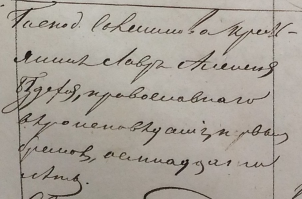 Господ. Савелиова Крест-
янинъ Лавръ Алексея
православнаго
вероисповеданія, первымъ
бракомъ, осмнадцати
летъ.